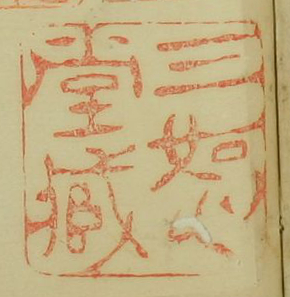 三恕
堂藏